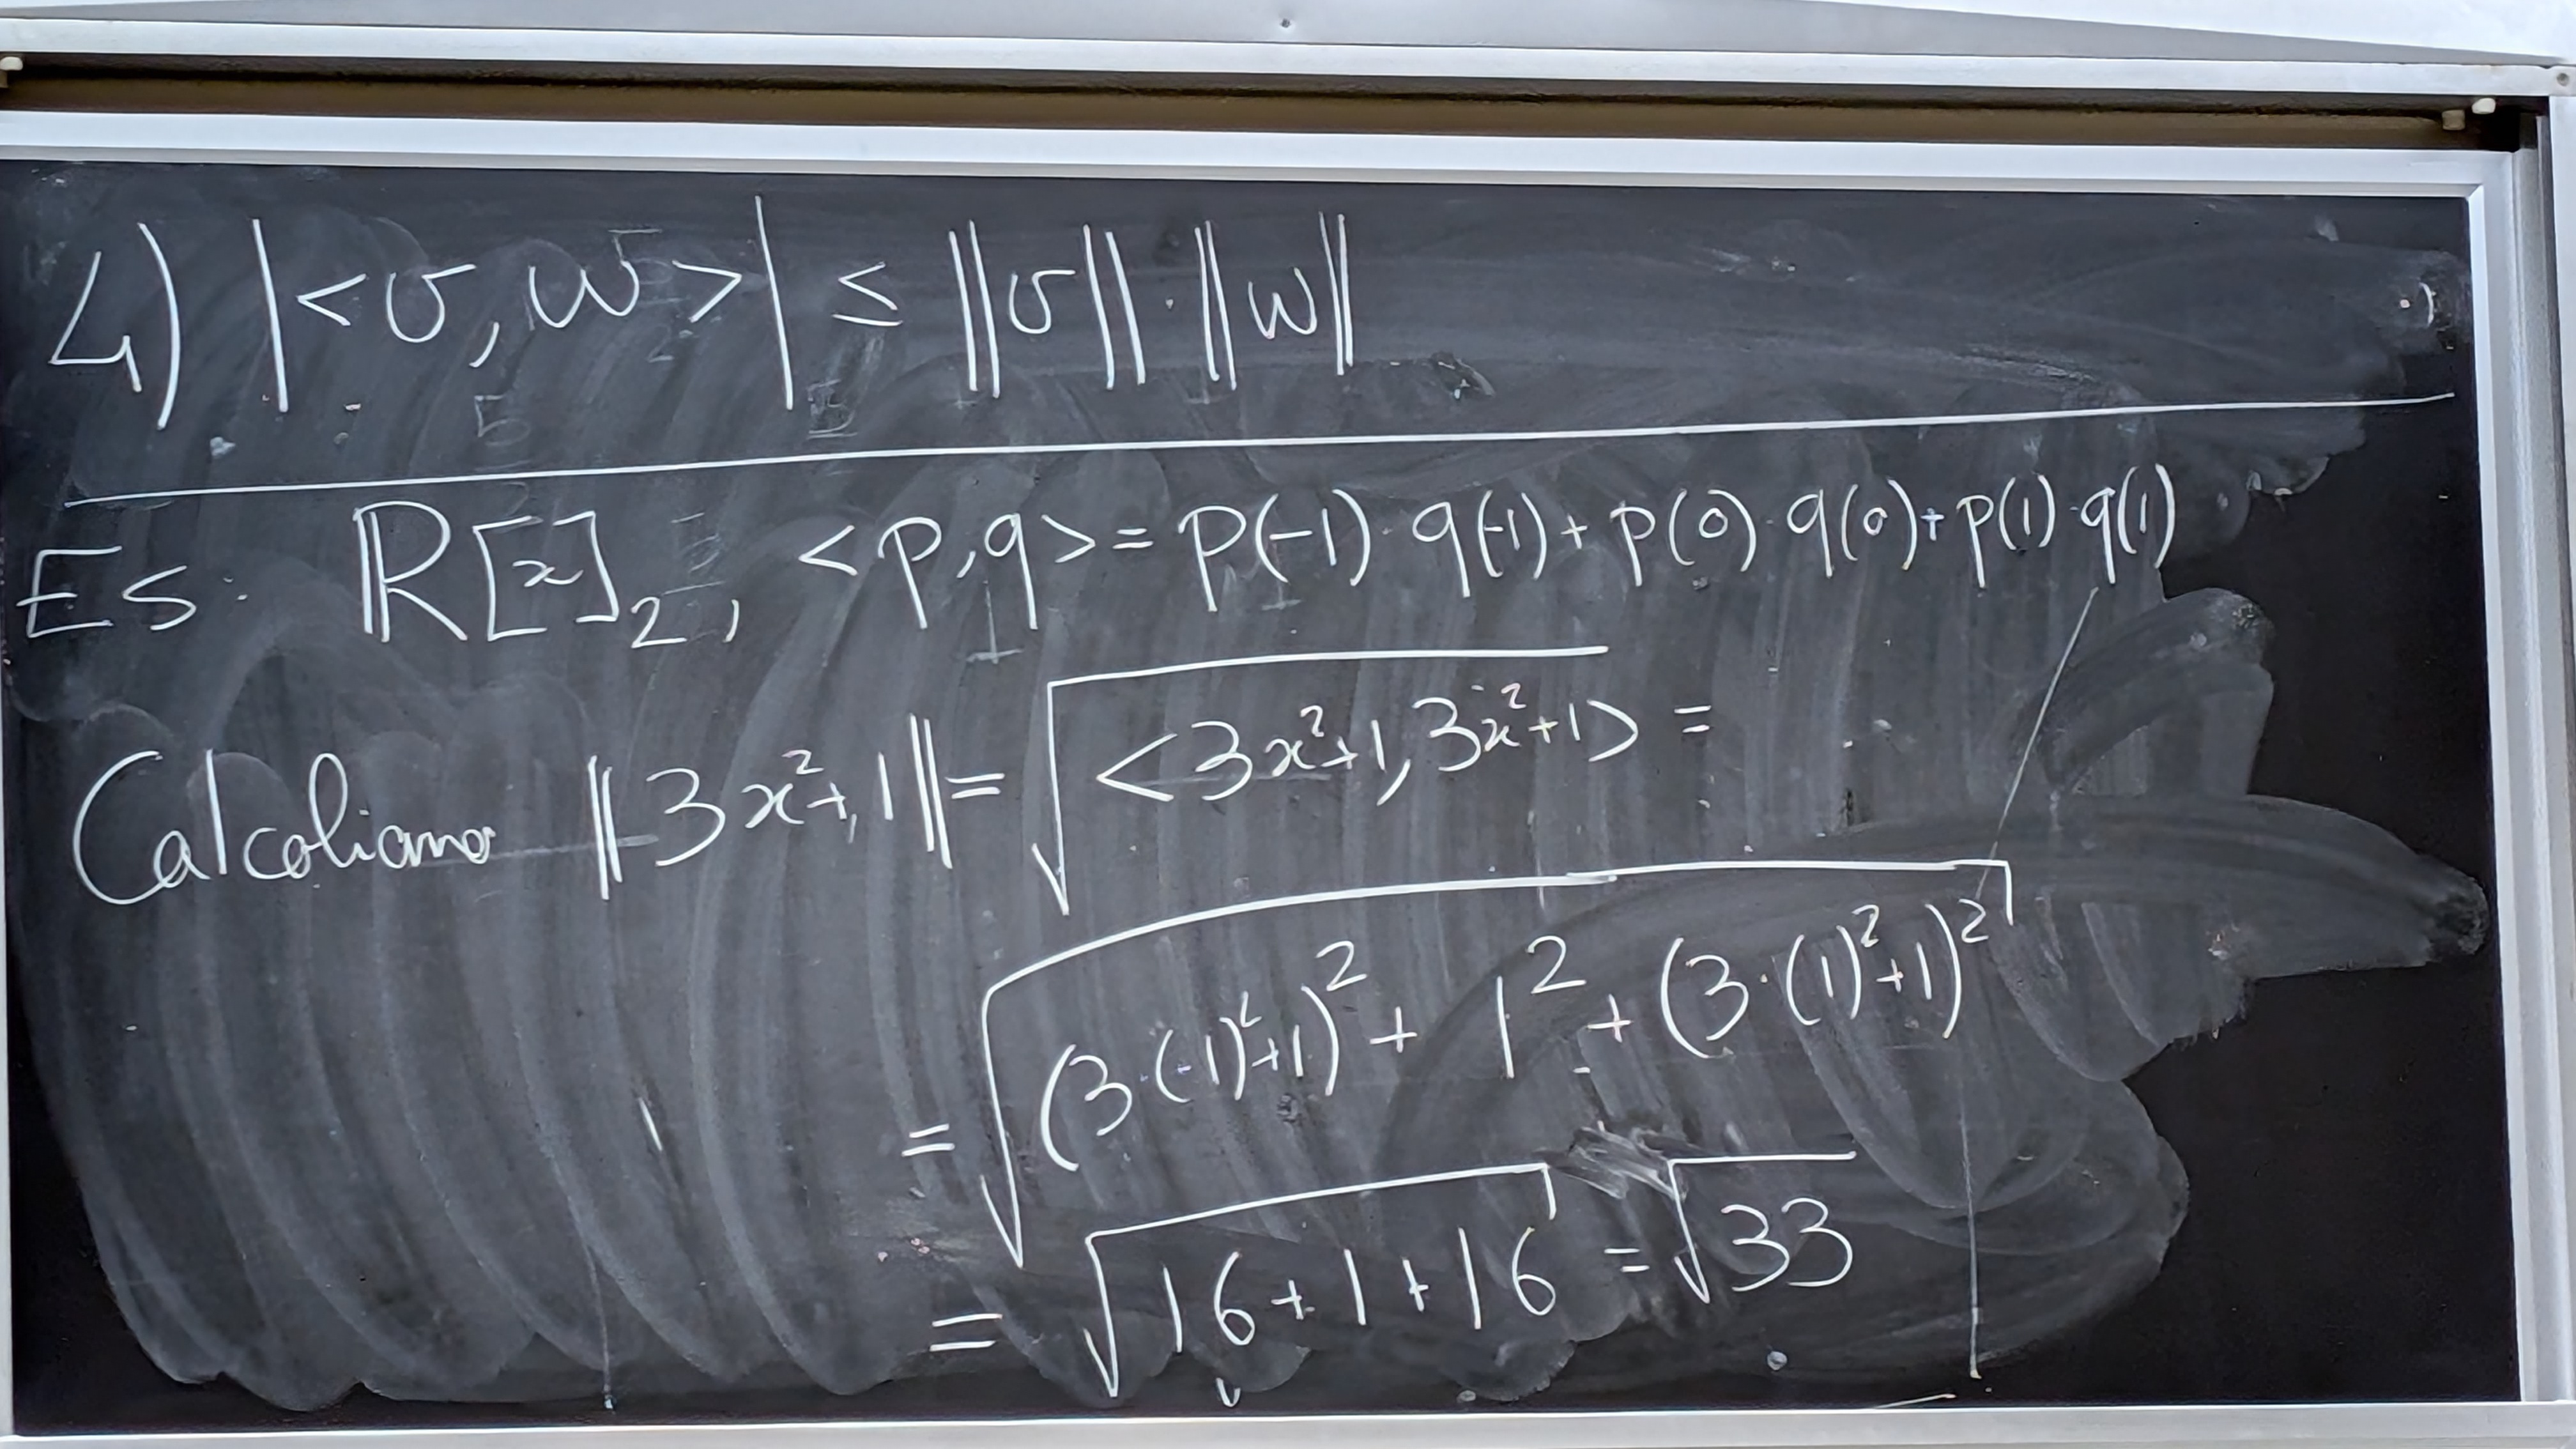 4) |<v, w>| ≤ ||v|| · ||w||
Es: ℝ[x]₂, <p,q> = p(-1)·q(-1) + p(0)·q(0) + p(1)·q(1)
Calcoliamo ||3x²+1|| = √<3x²+1, 3x²+1> =
= √((3·(-1)²+1)² + 1² + (3·(1)²+1)²)
= √(16+1+16) = √33